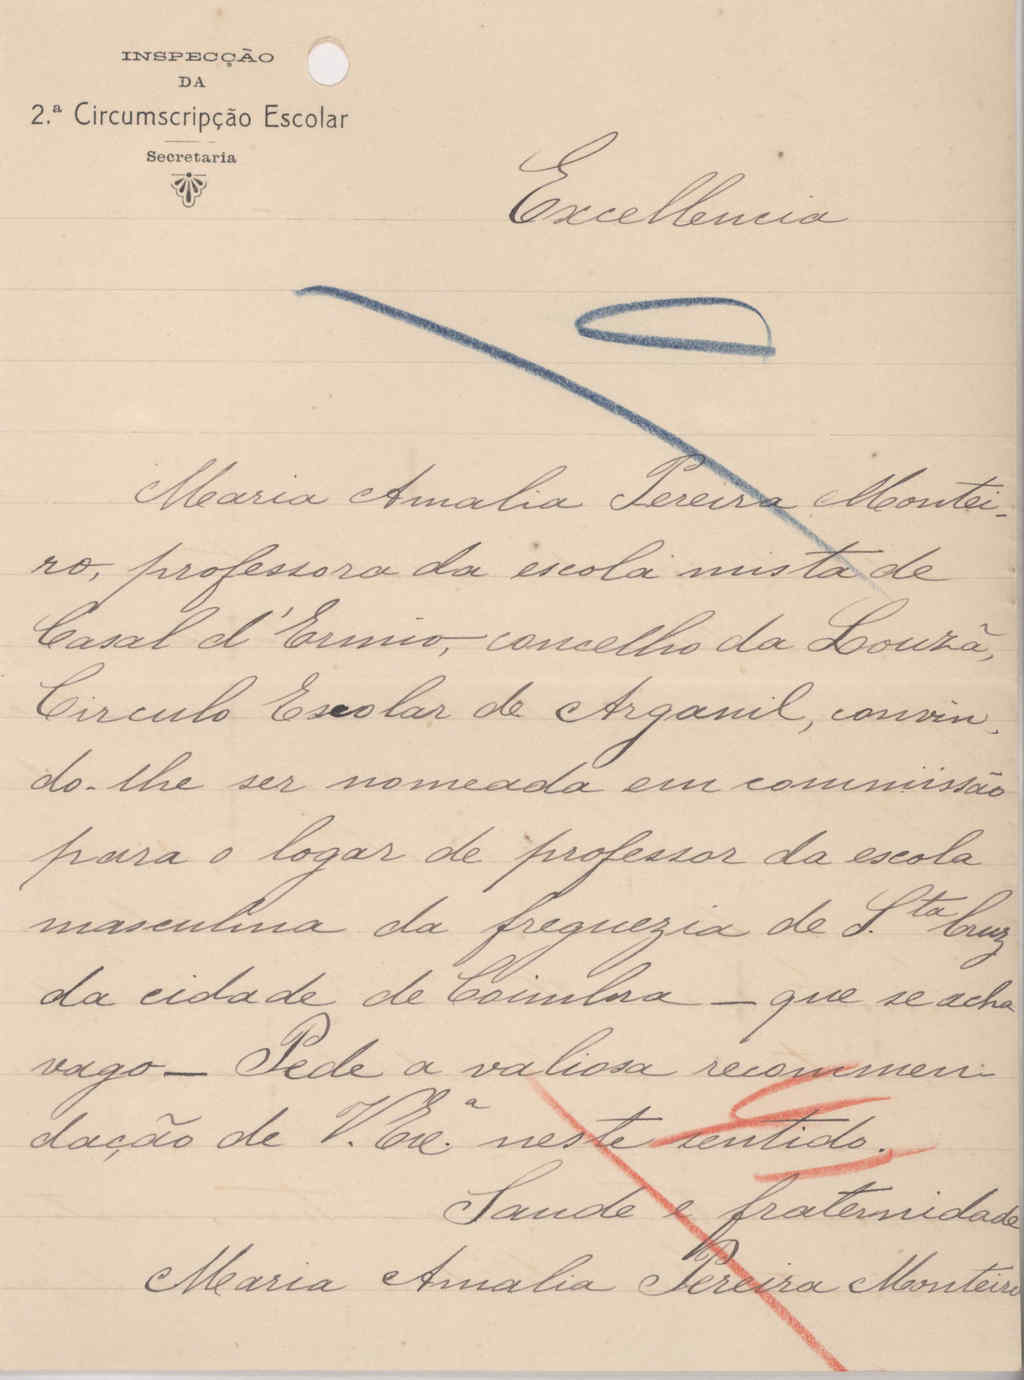 INSPECÇÃO
DA
2.ª Circumscripção Escolar
Secretaria
Excellencia
Maria Amalia Pereira Montei-
ro, professora da escola mista de
Casal d'Ermio, concelho da Louzã,
Circulo Escolar de Arganil, convin-
do-lhe ser nomeada em commissão
para o logar de professor da escola
masculina da freguezia de S.ta Cruz
da cidade de Coimbra – que se acha
vago – Pede a valiosa recommen-
dação de V. Exc.ª neste sentido.
Saude e fraternidade
Maria Amalia Pereira Monteiro